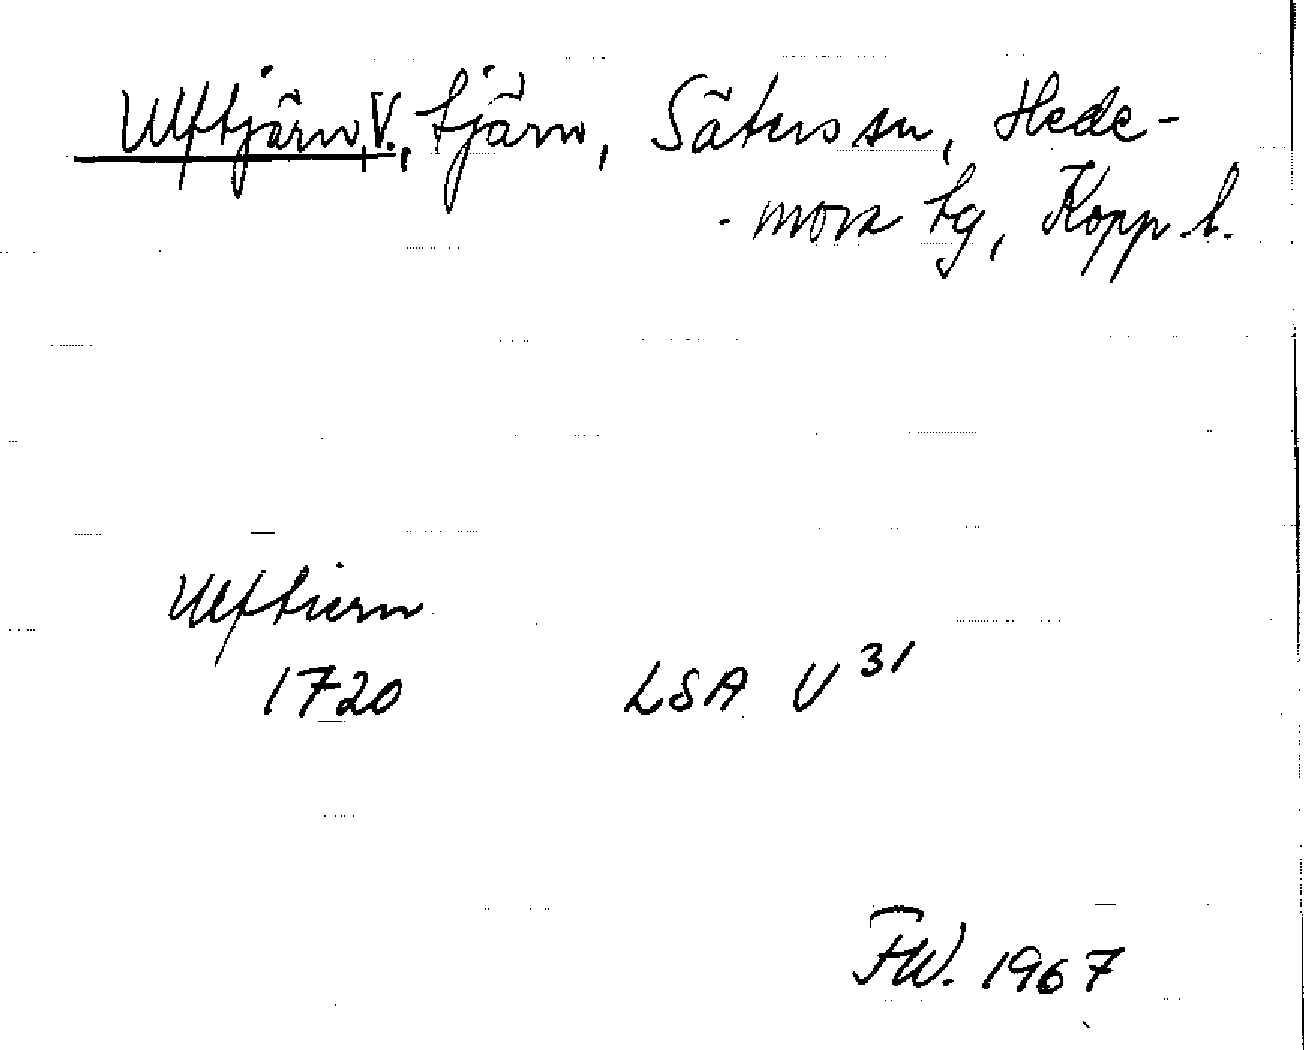 Ulftjärn, V., tjärn, Säters sn, Hede-
-mora tg, Kopp. l.
Ulftiern
1720 LSA U 31
FW. 1967